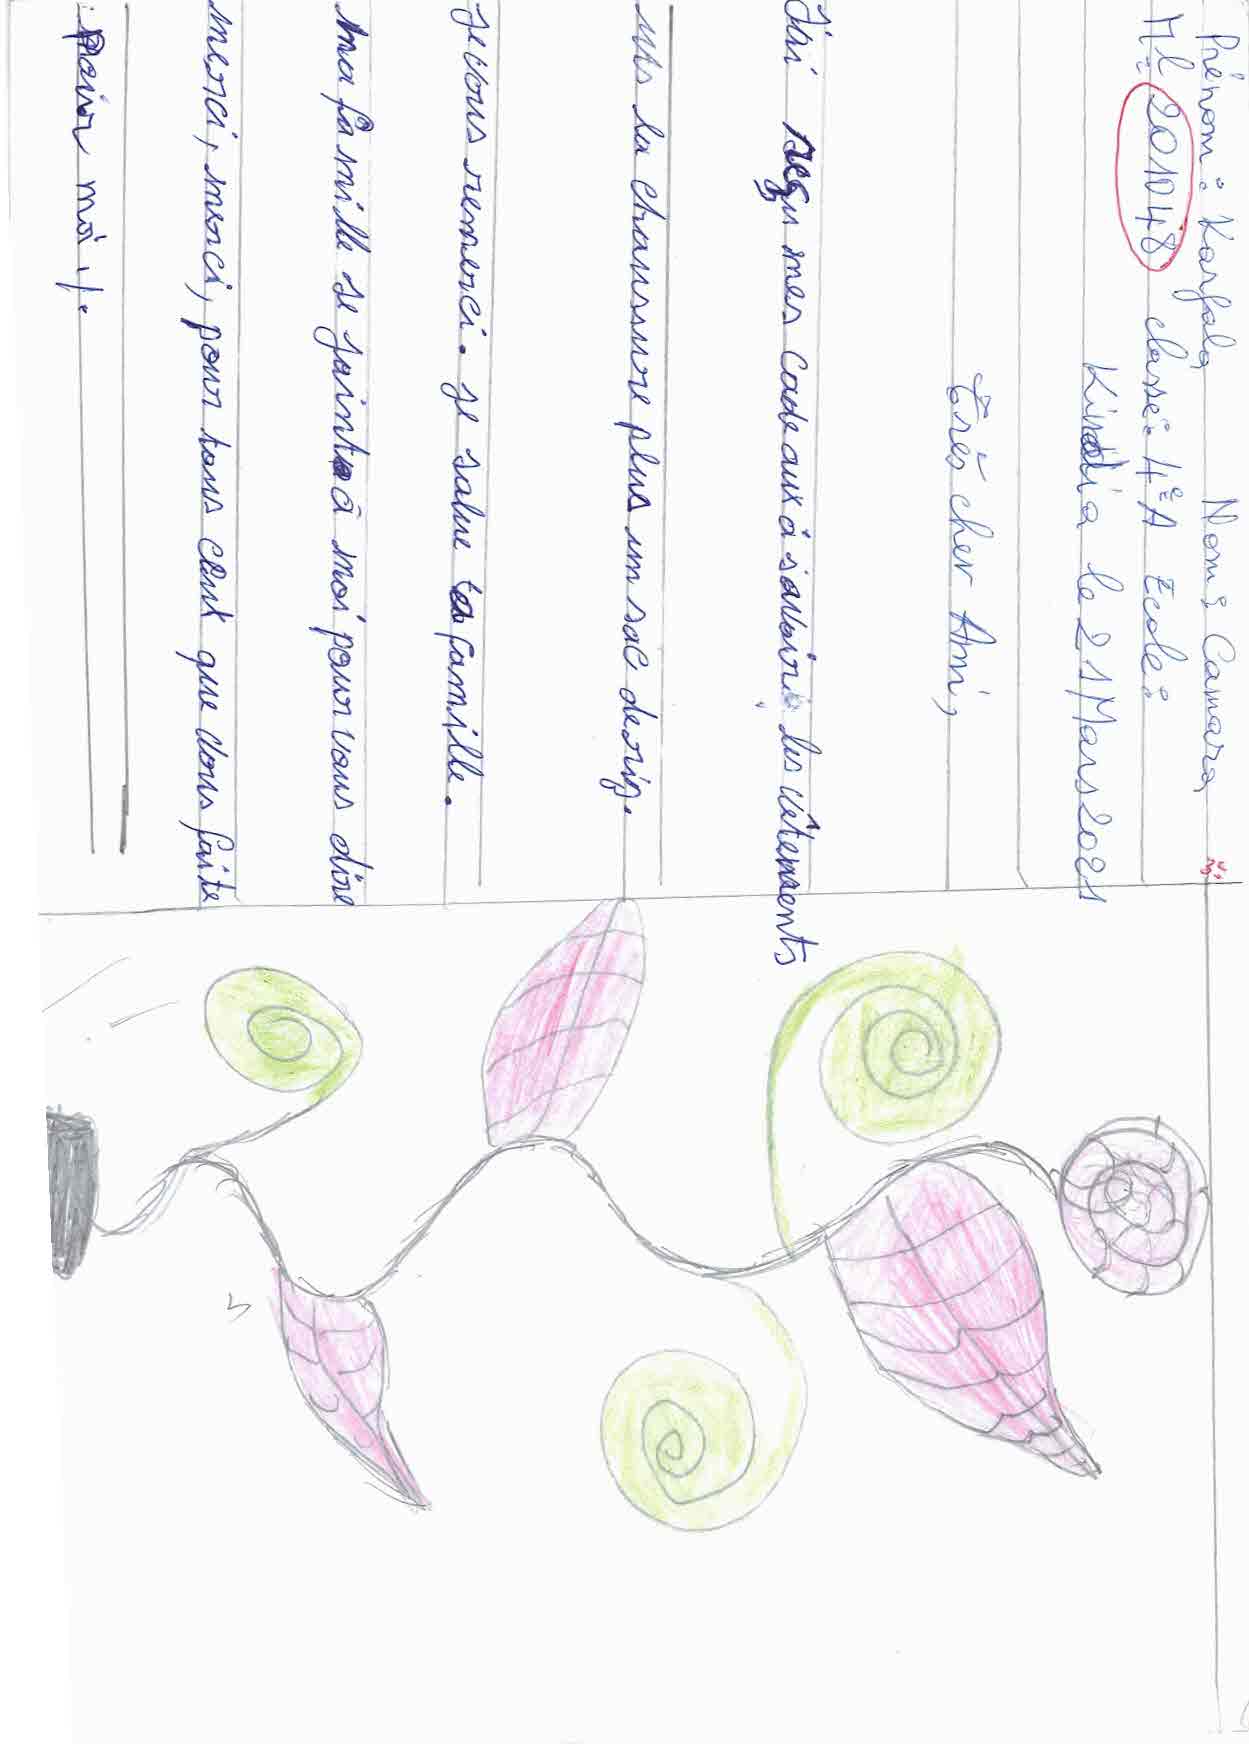 Prénom : Karfala Nom : Camara
Ml : 201048 classe : 4e A Ecole :
Kindia le 21 Mars 2021
Très cher Ami,
J'ai reçu mes cadeaux à savoir : les vêtements
la chaussure plus un sac de riz.
je vous remerci. je salue ta famille.
ma famille se joint à moi pour vous dire
merci, merci, pour tous ceux que vous faite
Pour moi ./.